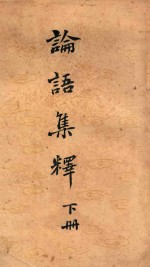 論語集釋
下册